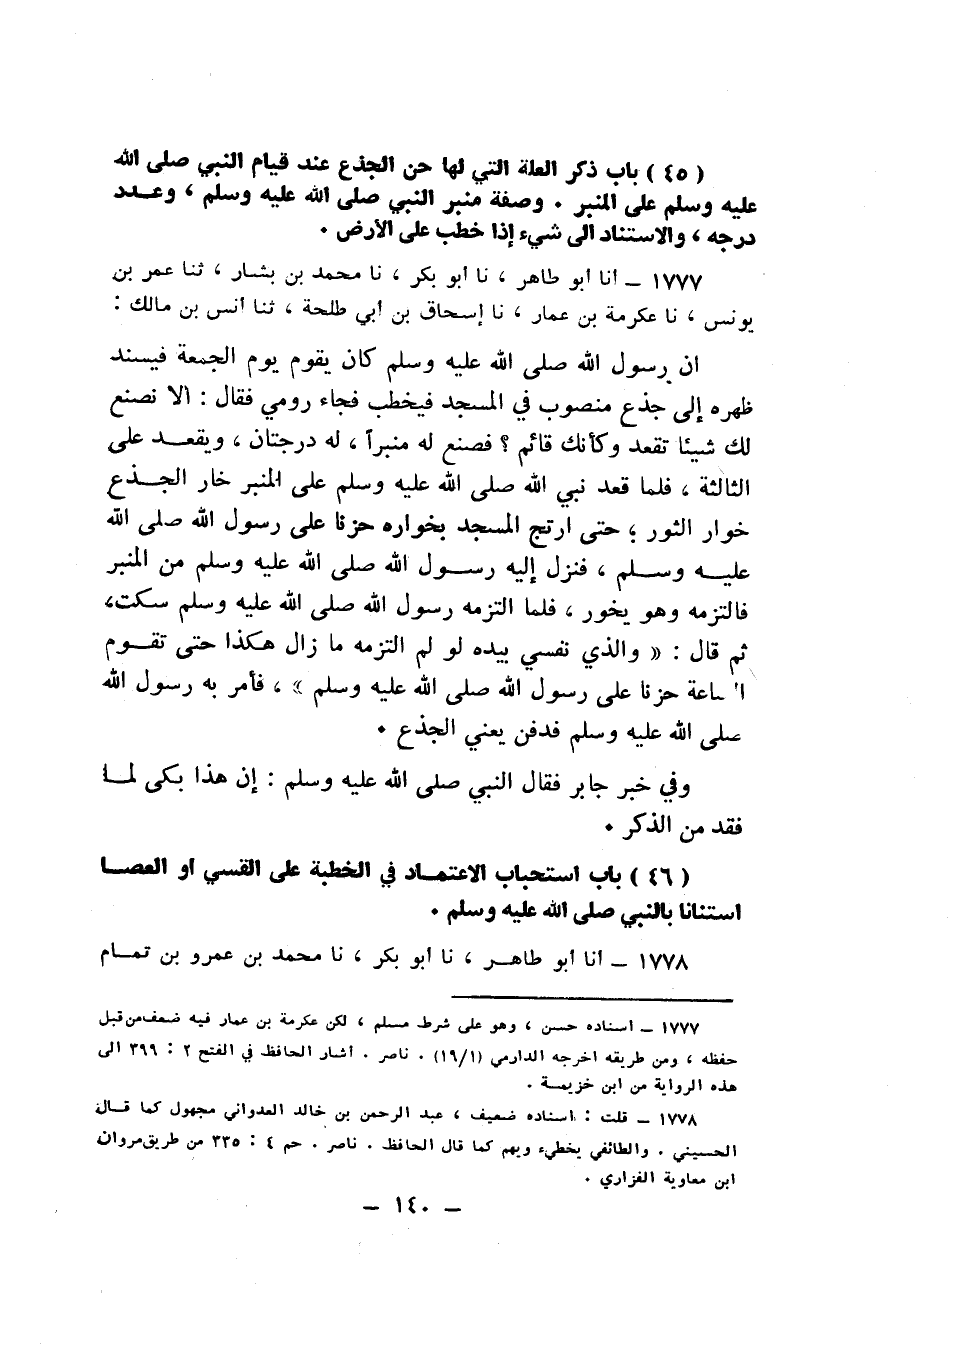 ( ٤٥ ) باب ذكر العلة التي لها حن الجذع عند قيام النبي صلى الله
عليه وسلم على المنبر . وصفة منبر النبي صلى الله عليه وسلم ، وعـدد
درجه ، والاستناد الى شيء إذا خطب على الأرض .
١٧٧٧ ــ أنا أبو طاهر ، نا أبو بكر ، نا محمد بن بشار ، ثنا عمر بن
يونس ، نا عكرمة بن عمار ، نا إسحاق بن أبي طلحة ، ثنا أنس بن مالك :
ان رسول الله صلى الله عليه وسلم كان يقوم يوم الجمعة فيسند
ظهره إلى جذع منصوب في المسجد فيخطب فجاء رومي فقال : ألا نصنع
لك شيئا تقعد وكأنك قائم ؟ فصنع له منبراً ، له درجتان ، ويقعـد على
الثالثة ، فلما قعد نبي الله صلى الله عليه وسلم على المنبر خار الجـذع
خوار الثور ؛ حتى ارتج المسجد بخواره حزنا على رسول الله صلى الله
عليـه وسـلم ، فنزل إليه رسـول الله صلى الله عليه وسلم من المنبر
فالتزمه وهو يخور ، فلما التزمه رسول الله صلى الله عليه وسلم سكت،
ثم قال : « والذي نفسي بيده لو لم التزمه ما زال هكذا حتى تقـوم
الساعة حزنا على رسول الله صلى الله عليه وسلم » ، فأمر به رسول الله
صلى الله عليه وسلم فدفن يعني الجذع .
وفي خبر جابر فقال النبي صلى الله عليه وسلم : إن هذا بكى لمـا
فقد من الذكر .
( ٤٦ ) باب استحباب الاعتمـاد في الخطبة على القسي أو العصـا
استنانا بالنبي صلى الله عليه وسلم .
١٧٧٨ ــ أنا أبو طاهـر ، نا أبو بكر ، نا محمد بن عمرو بن تمـام
١٧٧٧ ــ اسناده حسن ، وهو على شرط مسلم ، لكن عكرمة بن عمار فيه ضعف من قبل
حفظه ، ومن طريقه اخرجه الدارمي (١٦/١) . ناصر . أشار الحافظ في الفتح ٢ : ٣٩٩ الى
هذه الرواية من ابن خزيمـة .
١٧٧٨ ــ قلت : اسناده ضعيف ، عبد الرحمن بن خالد العدواني مجهول كما قـال
الحسيني . والطائفي يخطيء ويهم كما قال الحافظ . ناصر . حم ٤ : ٣٣٥ من طريق مروان
ابن معاوية الفزاري .
ــ ١٤٠ ــ